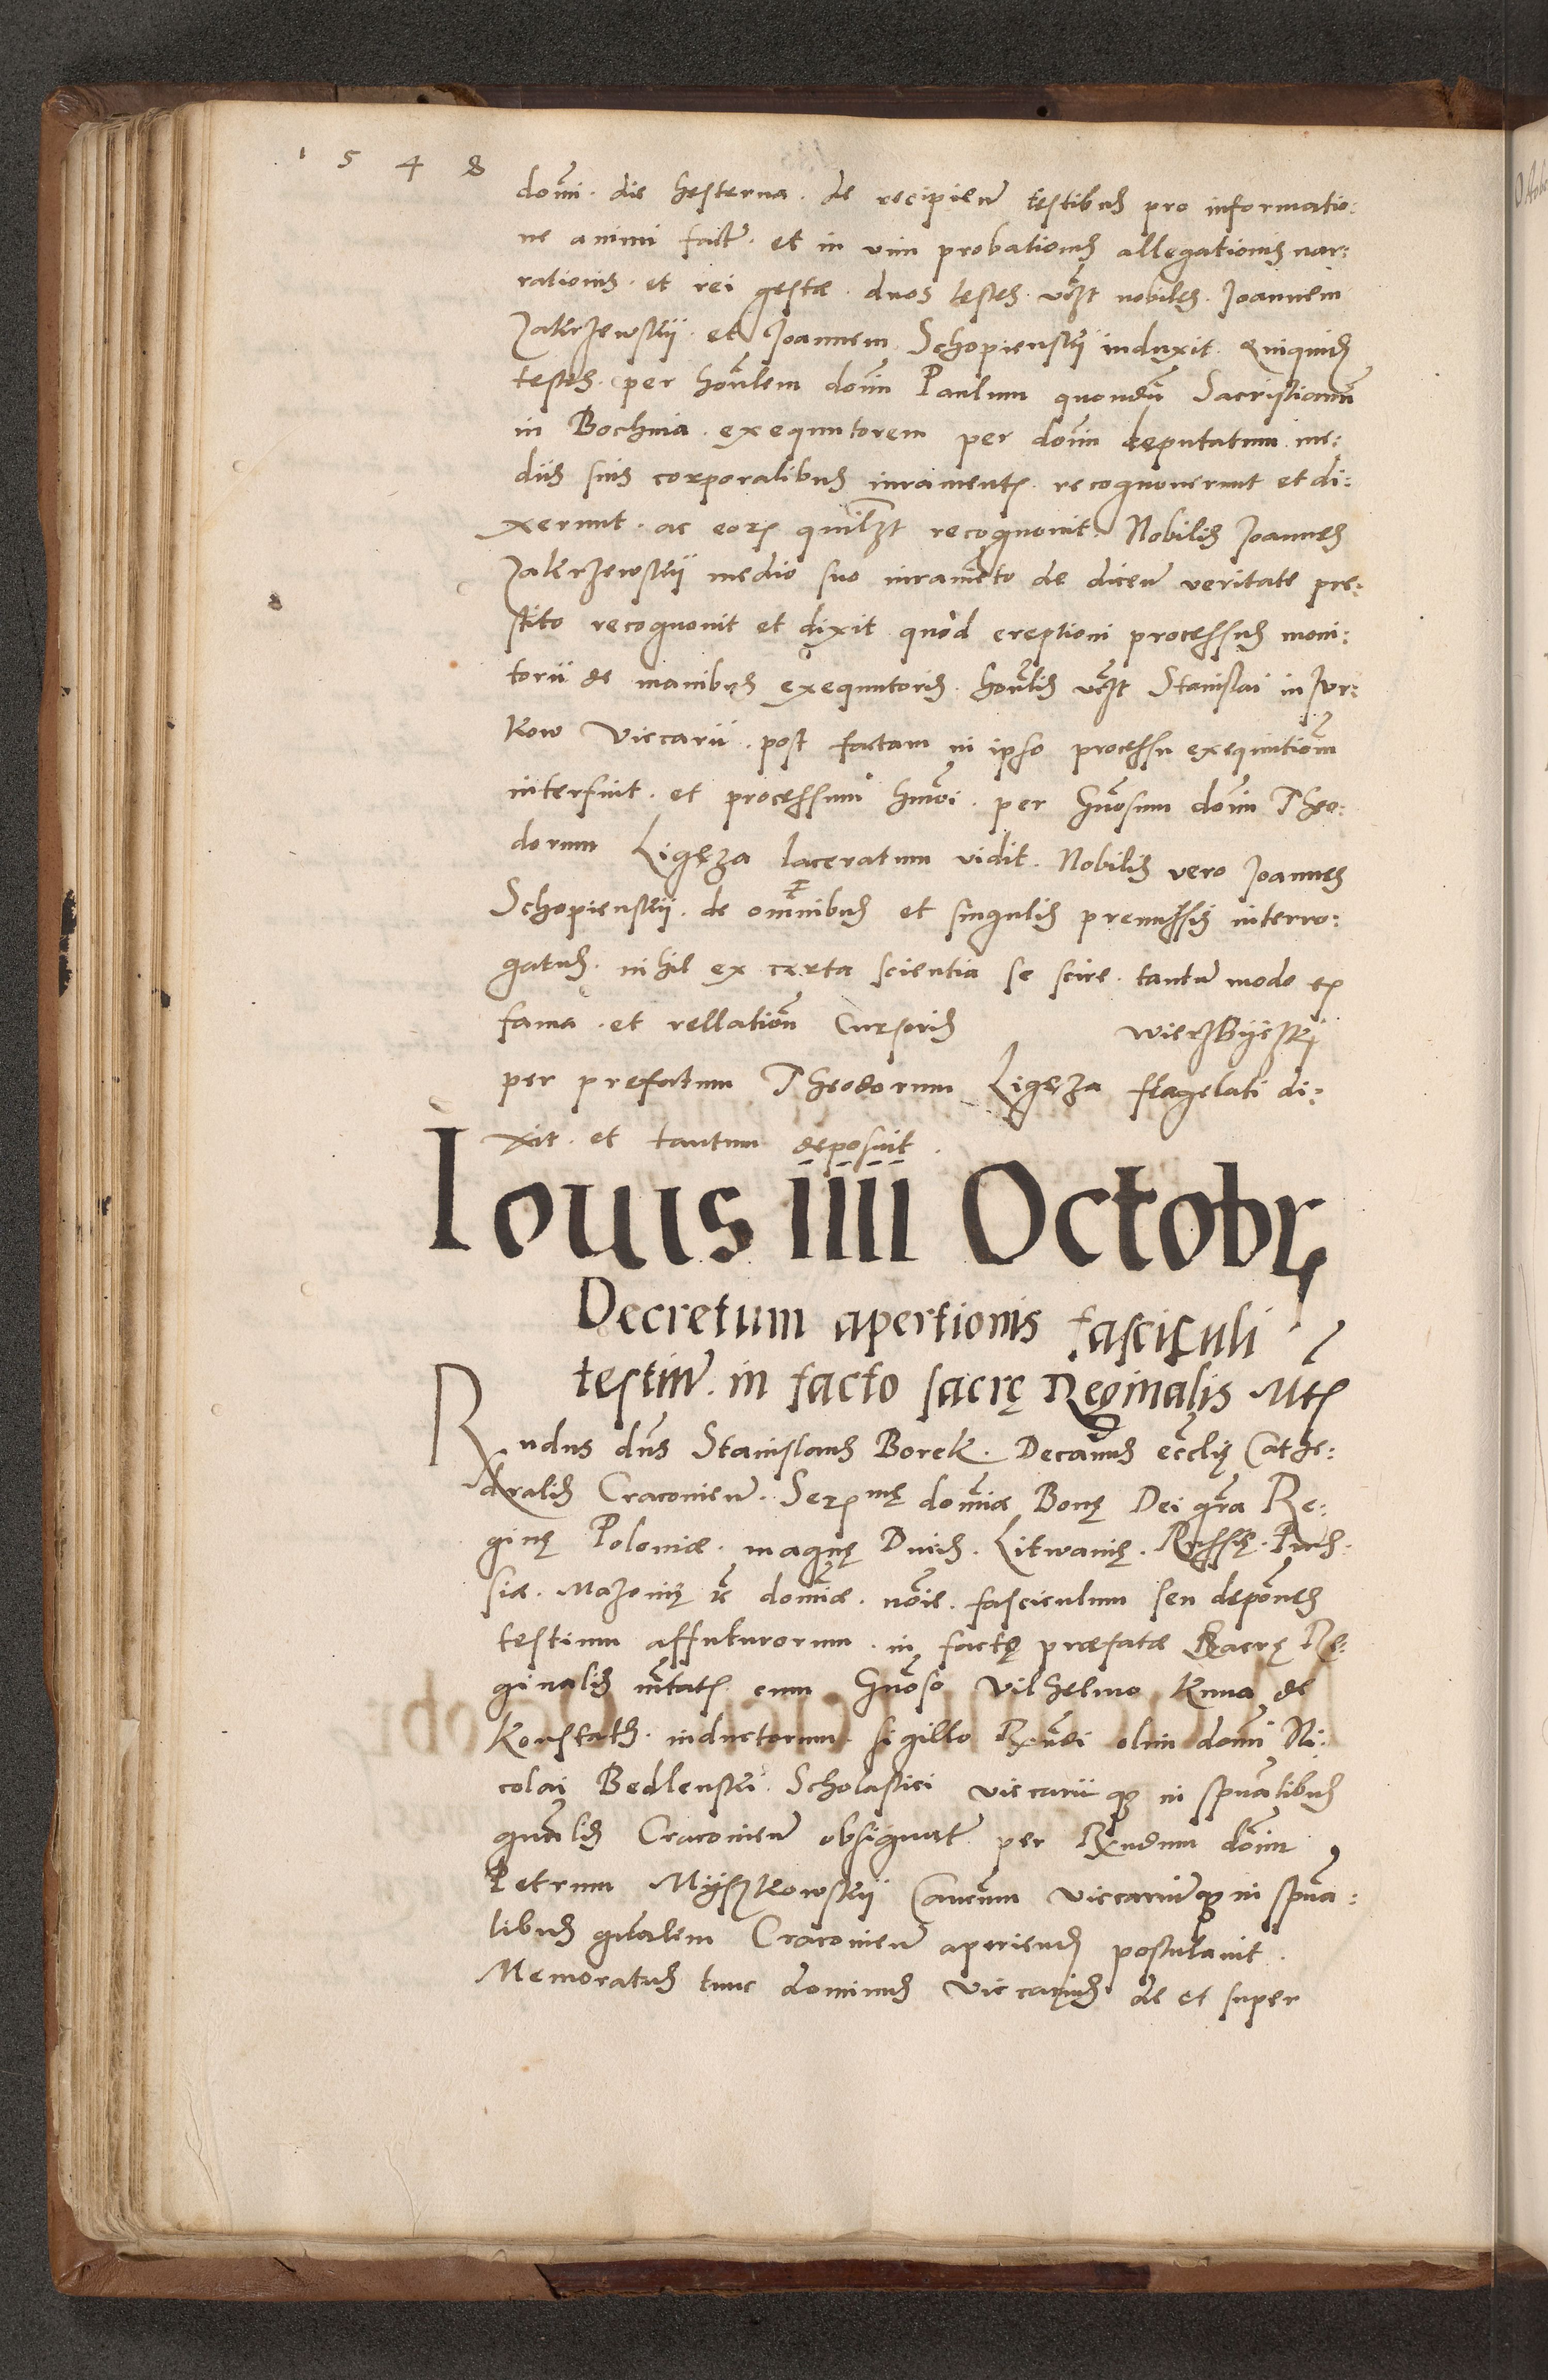 1 5 4 8
domi. die hesterna. de recipien testibus pro informatio:
ne animi fact. et in vim probationis allegationis nar:
rationis. et rei gestæ. duos testes. vczt nobiles. Joannem
Zakrzewskii. et Joannem Schopienskii induxit. Quiquid
testes. per honlem domi Paulum quondam Sacristianum
in Bochnia. exequutorem per domi deputatum. me:
diis suis corporalibus iuramentis. recognouerunt et di:
xerunt. ac eorum quilzt recognouit. Nobilis Joannes
Zakrzewskii medio suo iuramento de dicen veritate pre:
stito recognouit et dixit quod ereptioni processus moni:
torii de manibus exequutoris. honlis vczt Stanislai in Jur:
kow Viccarii. post factam in ipso processu exequutiom
interfuit. et processum hmoi. per Gnosum domi Theo:
dorum Ligęza laceratum vidit. Nobilis vero Joannes
Schopienskii. de omnibus et singulis premissis interro:
gatus. nihil ex certa scientia se scire. tantum modo ex
fama. et rellation Cursoris Wierzbijeski
per prefatum Theodorum Ligęza flagelati di:
xit. et tantum deposuit.
Iouis IIII Octobr
Decretum apertionis fasciculi
testium. in facto sacrę Reginalis Mtis
Rndus dns Stanislaus Borek. Decanus ecclię Cathe:
dralis Cracouien. Sermę domiæ Bonę Dei gra Re:
ginę Poloniæ. magnę Ducis. Litwanię. Russię. Prus:
siæ. Mazouię &c domiæ. noie. fasciculum seu depones
testium affuturorum. in factę præfatæ Sacrę Re:
ginalis mtatis. cum Gnoso Vilhelmo Kuna de
Konstath. inductorum. sigillo Rxndi olim domi Ni:
colai Bedlenski. Scholastici viccarii qz in spualibus
gnalis Cracouien obsignat per Rxndum domi
Petrum Mijszkowskii Cancum viccariumqz in spua:
libus gnalem Cracouien aperiendum postulauit.
Memoratus tunc dominus Viccarius de et super